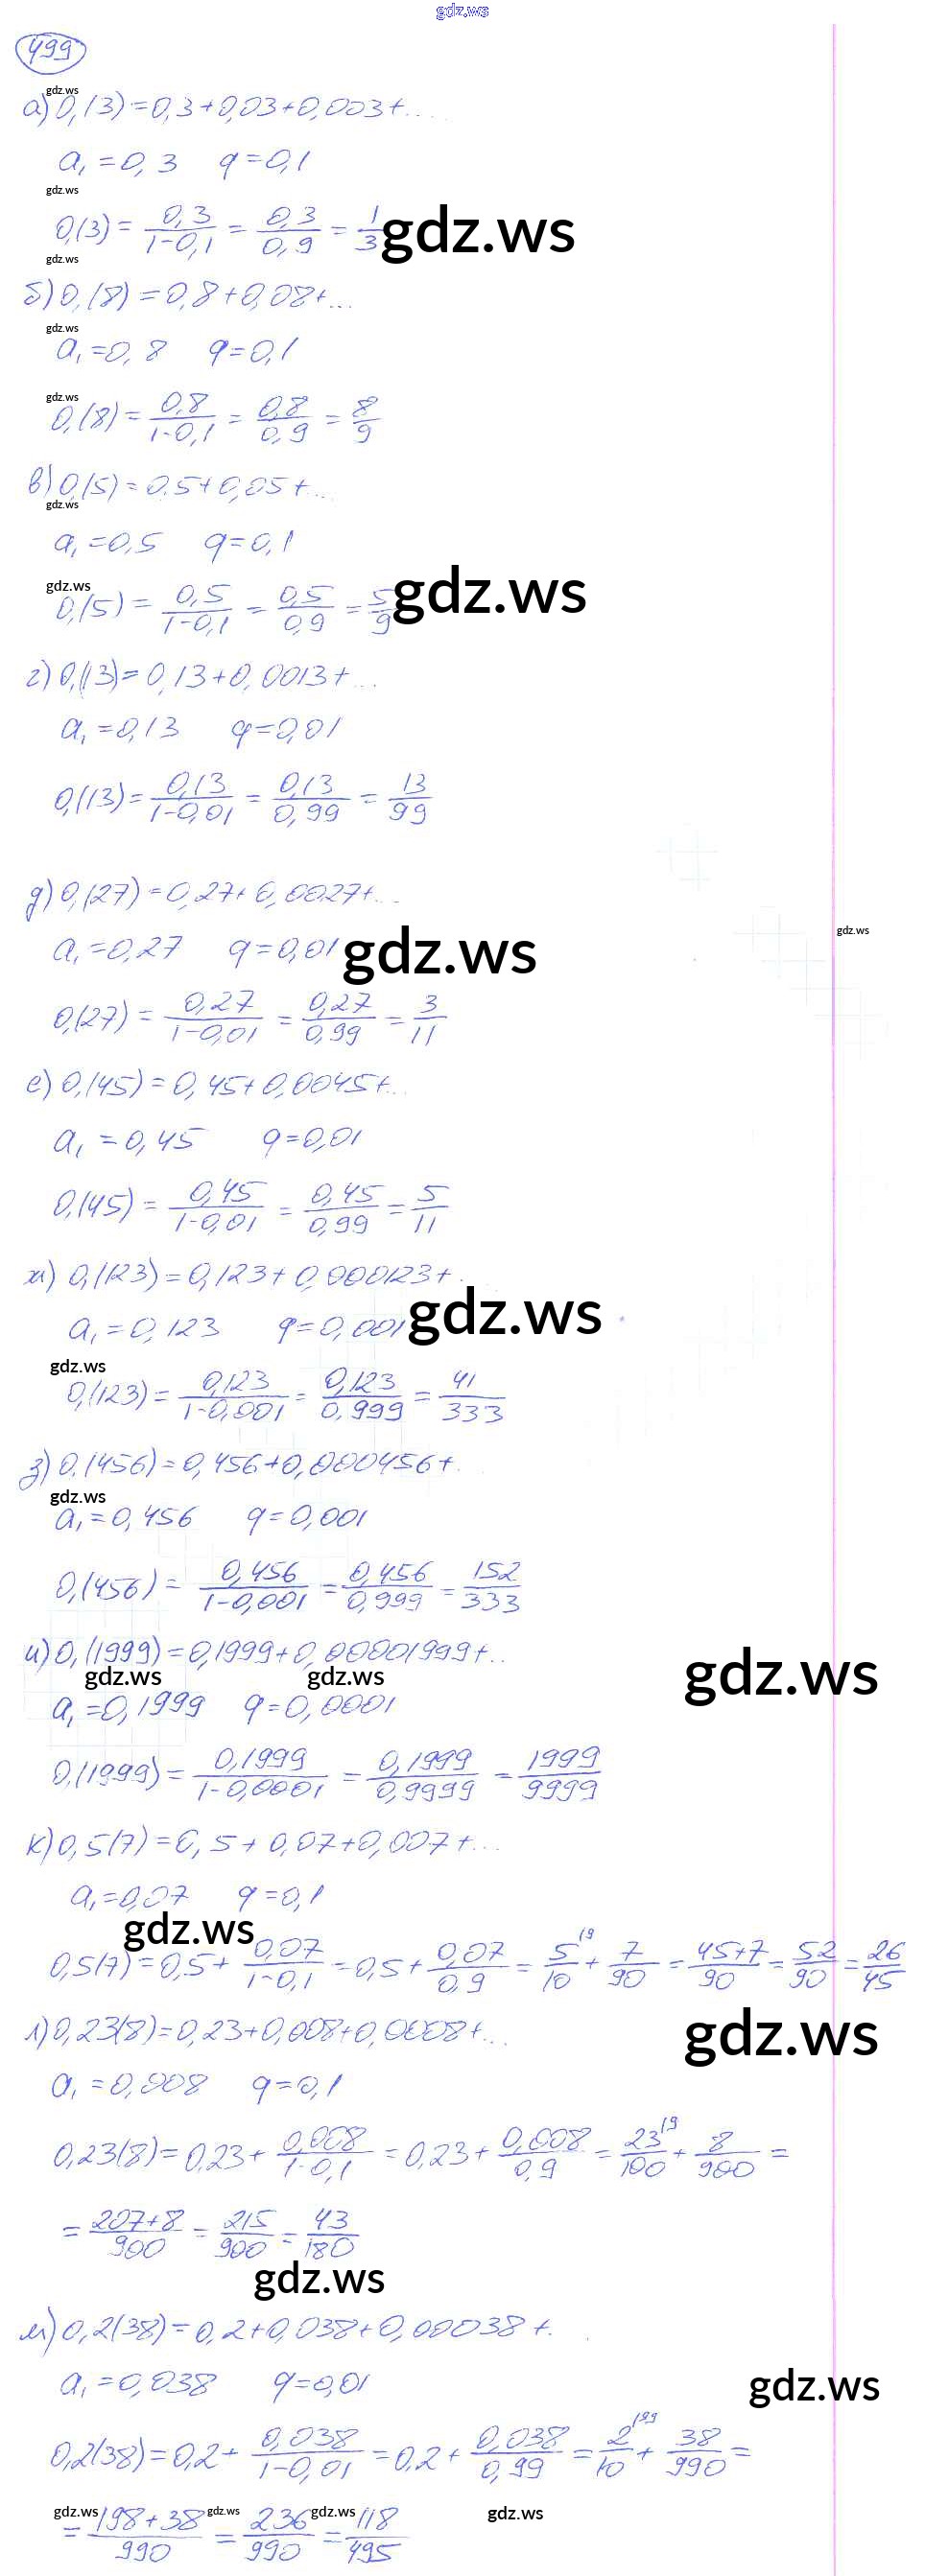 gdz.ws
499
gdz.ws
а) 0,(3) = 0,3 + 0,03 + 0,003 + ...
a₁ = 0,3 q = 0,1
gdz.ws
0,(3) = 0,3/(1-0,1) = 0,3/0,9 = 1/3 gdz.ws
gdz.ws
б) 0,(8) = 0,8 + 0,08 + ...
gdz.ws
a₁ = 0,8 q = 0,1
gdz.ws
0,(8) = 0,8/(1-0,1) = 0,8/0,9 = 8/9
в) 0,(5) = 0.5 + 0,05 + ...
gdz.ws
a₁ = 0,5 q = 0,1
gdz.ws
0,(5) = 0,5/(1-0,1) = 0,5/0,9 = 5/9 gdz.ws
г) 0,(13) = 0,13 + 0,0013 + ...
a₁ = 0,13 q = 0,01
0,(13) = 0,13/(1-0,01) = 0,13/0,99 = 13/99
д) 0,(27) = 0,27 + 0,0027 + ...
gdz.ws
a₁ = 0,27 q = 0,01 gdz.ws
0,(27) = 0,27/(1-0,01) = 0,27/0,99 = 3/11
е) 0,(45) = 0,45 + 0,0045 + ...
a₁ = 0,45 q = 0,01
0,(45) = 0,45/(1-0,01) = 0,45/0,99 = 5/11
ж) 0,(123) = 0,123 + 0,000123 + .
a₁ = 0,123 q = 0,001 gdz.ws
gdz.ws
0,(123) = 0,123/(1-0,001) = 0,123/0,999 = 41/333
з) 0,(456) = 0,456 + 0,000456 + .
gdz.ws
a₁ = 0,456 q = 0,001
0,(456) = 0,456/(1-0,001) = 0,456/0,999 = 152/333
и) 0,(1999) = 0,1999 + 0,00001999 + ..
gdz.ws gdz.ws gdz.ws
a₁ = 0,1999 q = 0,0001
0,(1999) = 0,1999/(1-0,0001) = 0,1999/0,9999 = 1999/9999
к) 0,5(7) = 0,5 + 0,07 + 0,007 + ...
a₁ = 0,07 q = 0,1
gdz.ws
0,5(7) = 0,5 + 0,07/(1-0,1) = 0,5 + 0,07/0,9 = 5/10 ⁽⁹ + 7/90 = (45+7)/90 = 52/90 = 26/45
л) 0,23(8) = 0,23 + 0,008 + 0,0008 + ...
gdz.ws
a₁ = 0,008 q = 0,1
0,23(8) = 0,23 + 0,008/(1-0,1) = 0,23 + 0,008/0,9 = 23/100 ⁽⁹ + 8/900 =
= (207+8)/900 = 215/900 = 43/180
gdz.ws
м) 0,2(38) = 0,2 + 0,038 + 0,00038 + .
a₁ = 0,038 q = 0,01
gdz.ws
0,2(38) = 0,2 + 0,038/(1-0,01) = 0,2 + 0,038/0,99 = 2/10 ⁽⁹⁹ + 38/990 =
gdz.ws gdz.ws gdz.ws gdz.ws
= (198+38)/990 = 236/990 = 118/495